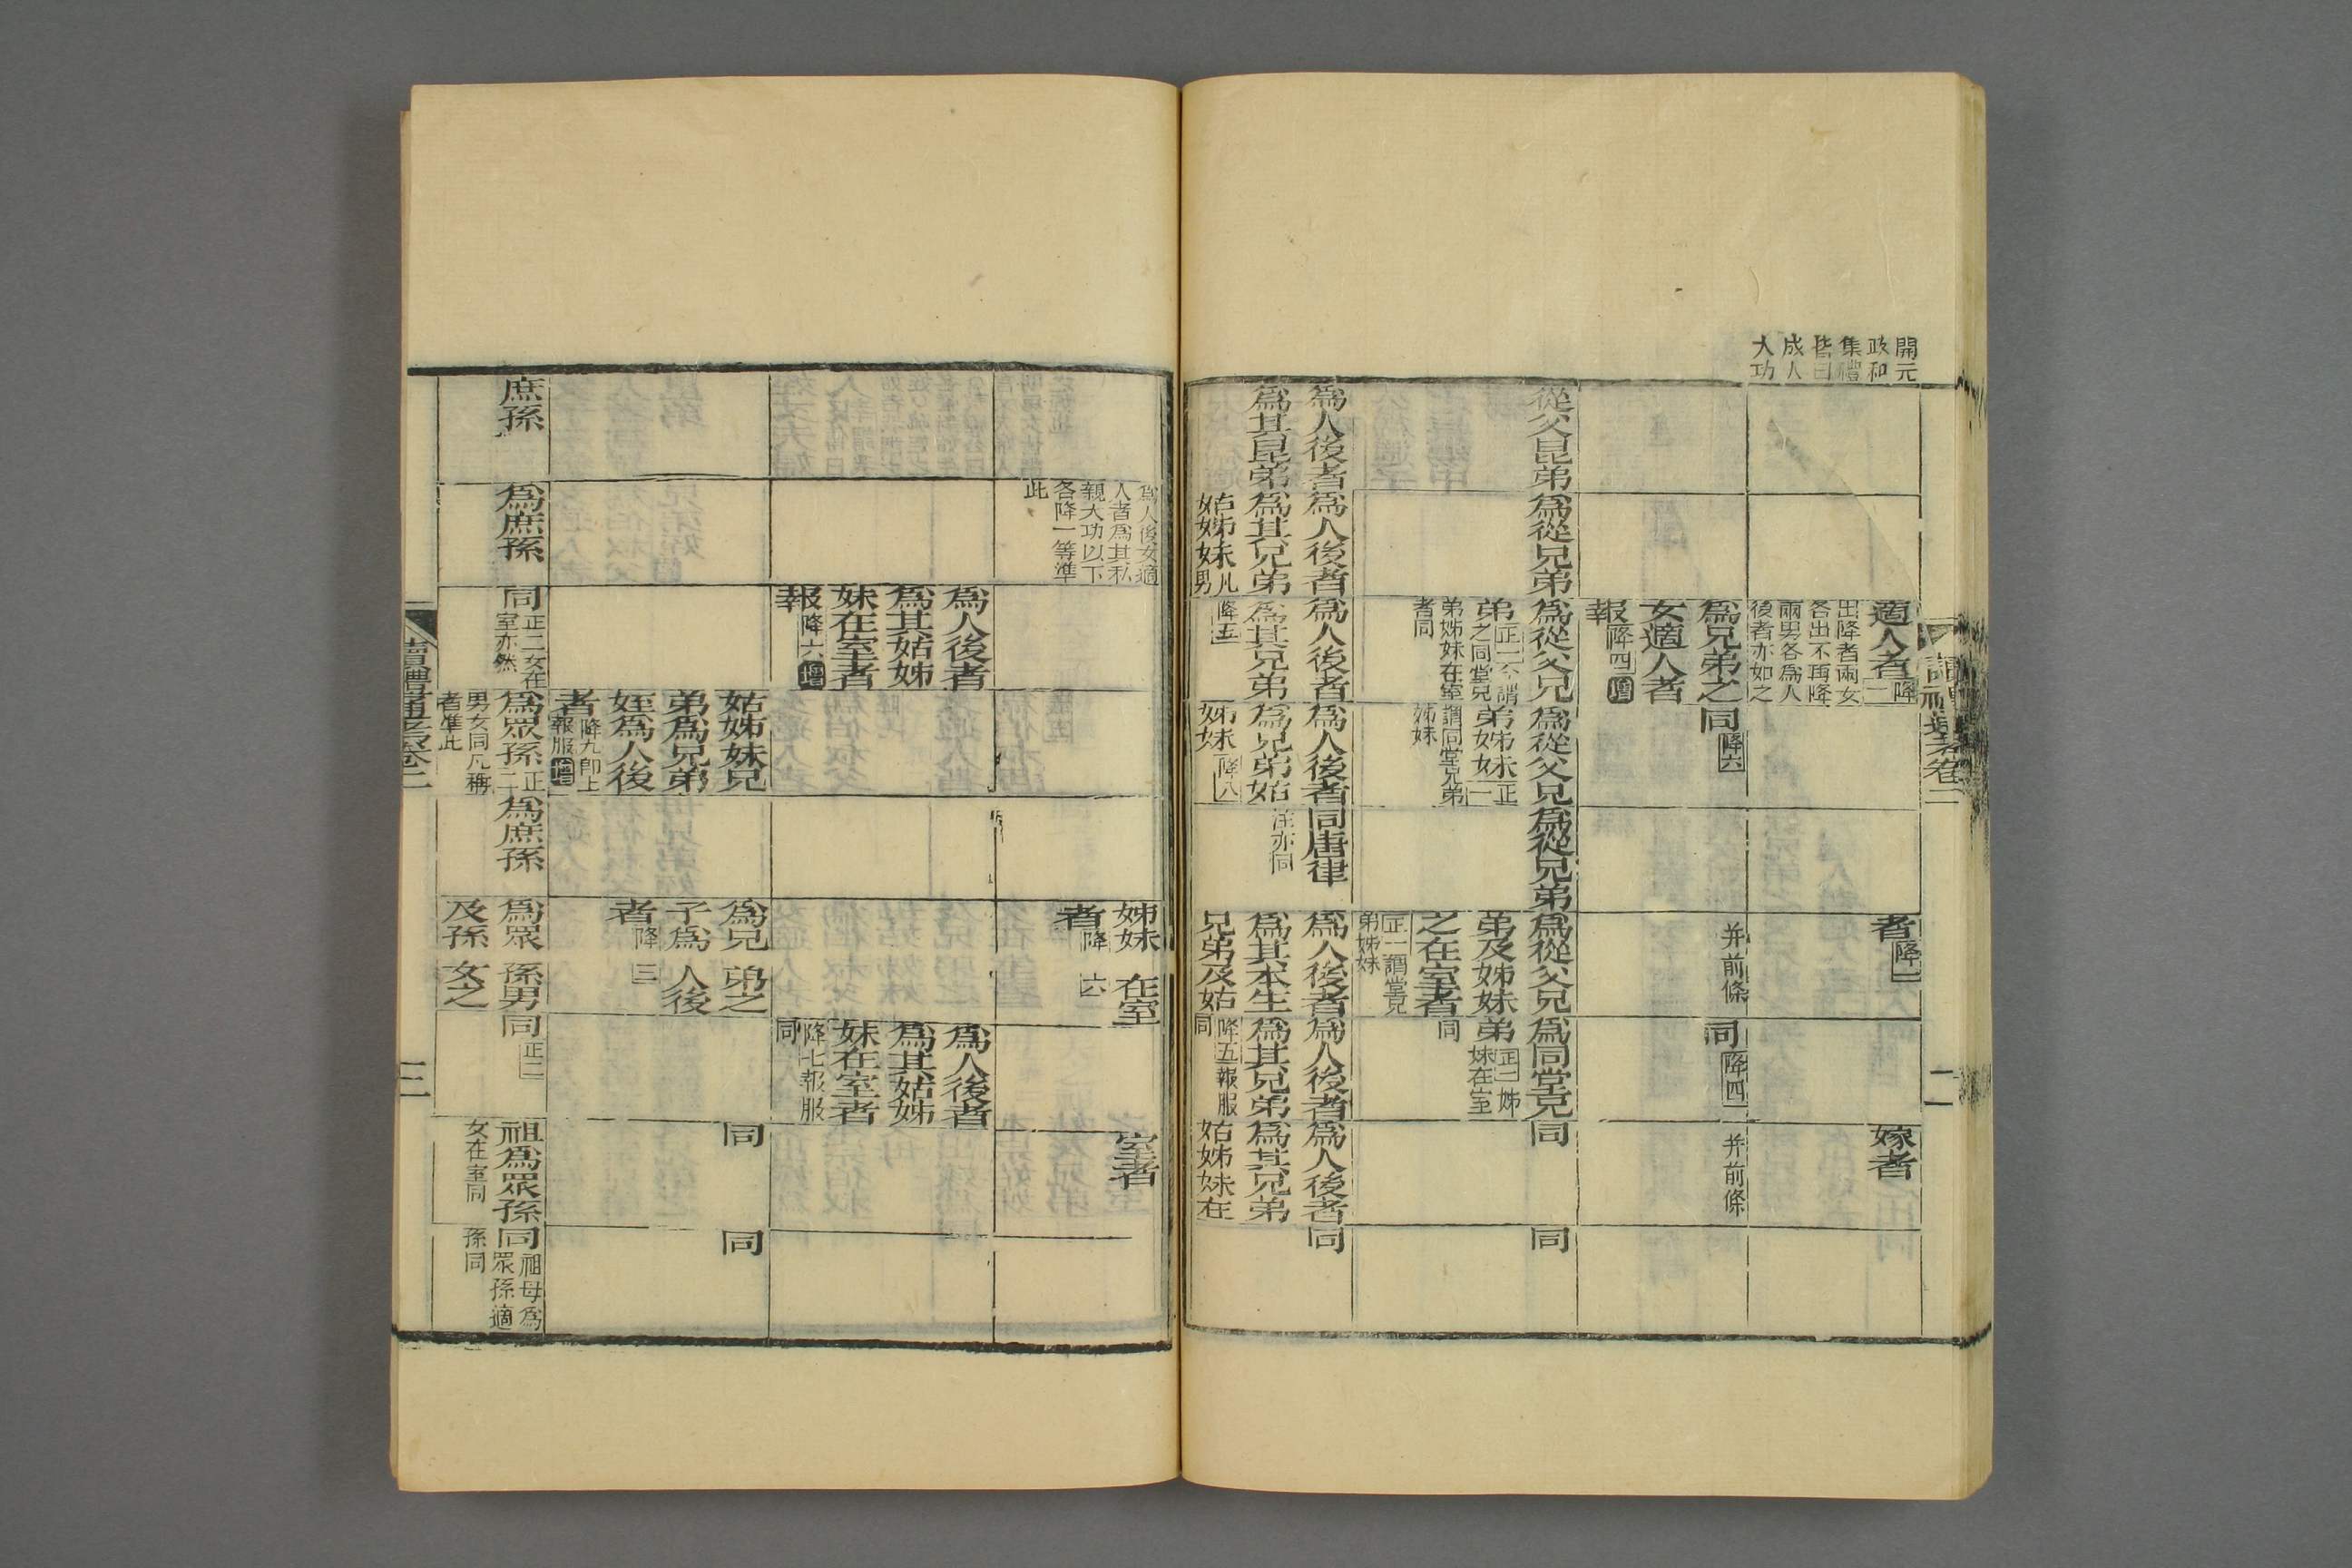 開元
政和
集禮
皆曰
成人
大功
讀禮通考卷二
二
適人者降二
出降者兩女
各出不再降
兩男各為人
後者亦如之
者降一
嫁者
為兄弟之
女適人者
報降四增
同降六
并前條
同降四
并前條
從父昆弟
為從兄弟
為從父兄
弟正二不謂
弟之同堂兄
弟姊妹在室
者同
為從父兄
弟姊妹正一
謂同堂兄弟
姊妹
為從兄弟
為從父兄
弟及姊妹
之在室者
正一謂堂兄
弟姊妹
為同堂兄
弟正二姊
妹在室
同
同
同
為人後者
為其昆弟
為人後者
為其兄弟
姑姊妹凡男
為人後者
為其兄弟
降五
為人後者
為兄弟姑
姊妹降八
同唐律
注亦同
為人後者
為其本生
兄弟及姑
為人後者
為其兄弟
降五報服
同
為人後者
為其兄弟
姑姊妹在
同
為人後女適
人者為其私
親大功以下
各降一等準
此
姊妹在室
者降六
室者
為人後者
為其姑姊
妹在室者
報降六增
為人後者
為其姑姊
妹在室者
降七報服
同
姑姊妹兄
弟為兄弟
姪為人後
者降九即上
報服增
為兄弟之
子為人後
者降三
同
同
庶孫
為庶孫
同正二女在
室亦然
為眾孫正二
男女同凡稱
者準此
為庶孫
為眾孫男
及孫女之
同正二
祖為眾孫
女在室同
同祖母為
眾孫適
孫同
讀禮通考卷二
三